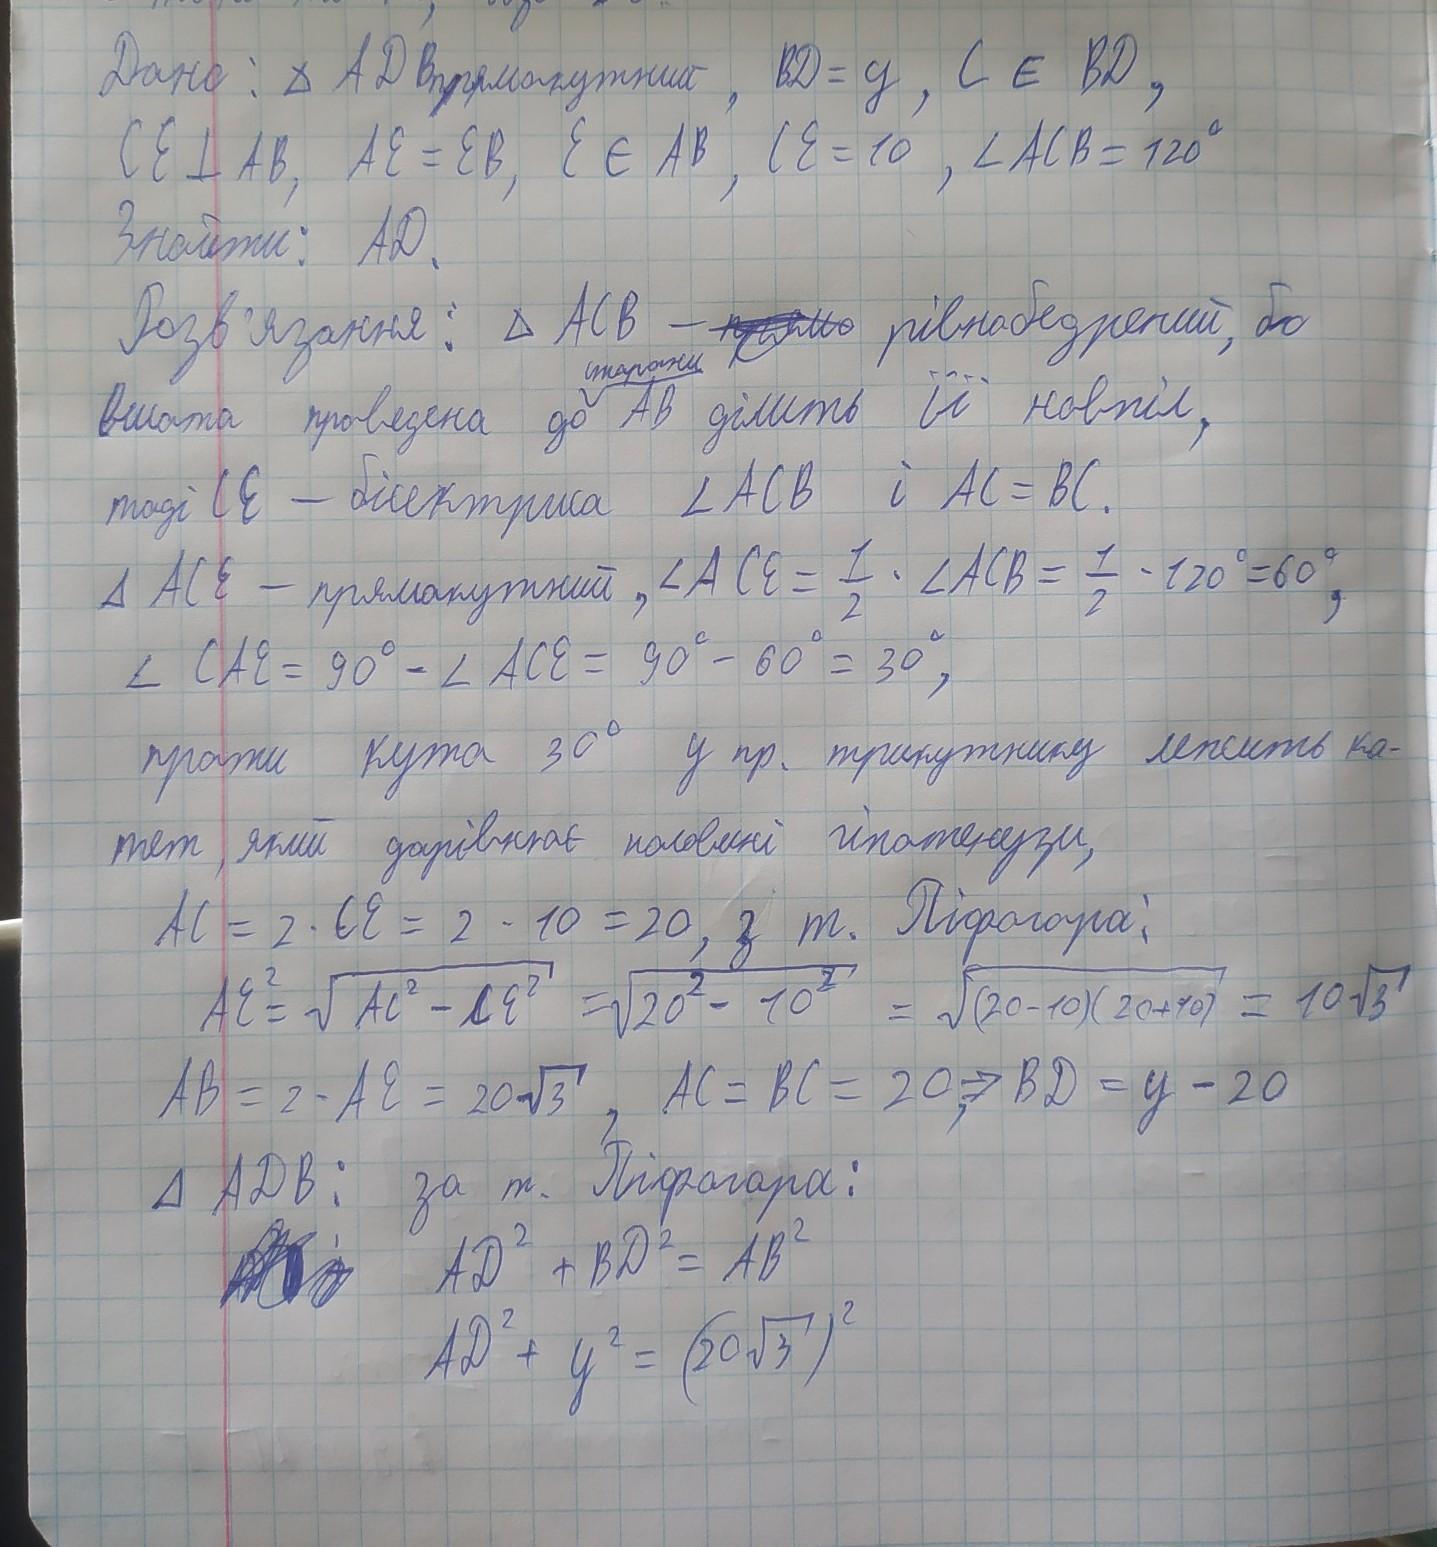 Дано: △ ADB прямокутний, BD = y, C ∈ BD,
CE ⊥ AB, AE = EB, E ∈ AB, CE = 10, ∠ACB = 120°
Знайти: AD.
Розв'язання: △ ACB – рівнобедрений, бо
сторони
висота проведена до AB ділить її навпіл,
тоді CE – бісектриса ∠ACB і AC = BC.
△ ACE – прямокутний, ∠ACE = 1/2 · ∠ACB = 1/2 · 120° = 60°,
∠ CAE = 90° - ∠ ACE = 90° - 60° = 30°,
проти кута 30° у пр. трикутнику лежить ка-
тет, який дорівнює половині гіпотенузи,
AC = 2 · CE = 2 · 10 = 20, з т. Піфагора:
AE² = √(AC² - CE²) = √(20² - 10²) = √((20-10)(20+10)) = 10√3
AB = 2 · AE = 20√3, AC = BC = 20, ⇒ BD = y - 20
△ ADB: за т. Піфагора:
AD² + BD² = AB²
AD² + y² = (20√3)²